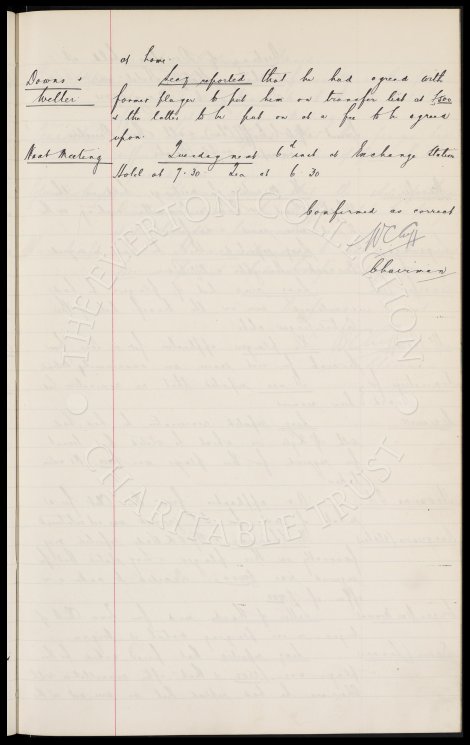 at home.
Downs & Secy reported that he had agreed with
Weller former player to put him on transfer list at £500
& the latter to be put on at a fee to be agreed
upon.
Next Meeting Tuesday next 6th inst at Exchange Station
Hotel at 7-30 Tea at 6 30
Confirmed as correct
W.C. Cuff
Chairman
• THE EVERTON COLLECTION •
CHARITABLE TRUST